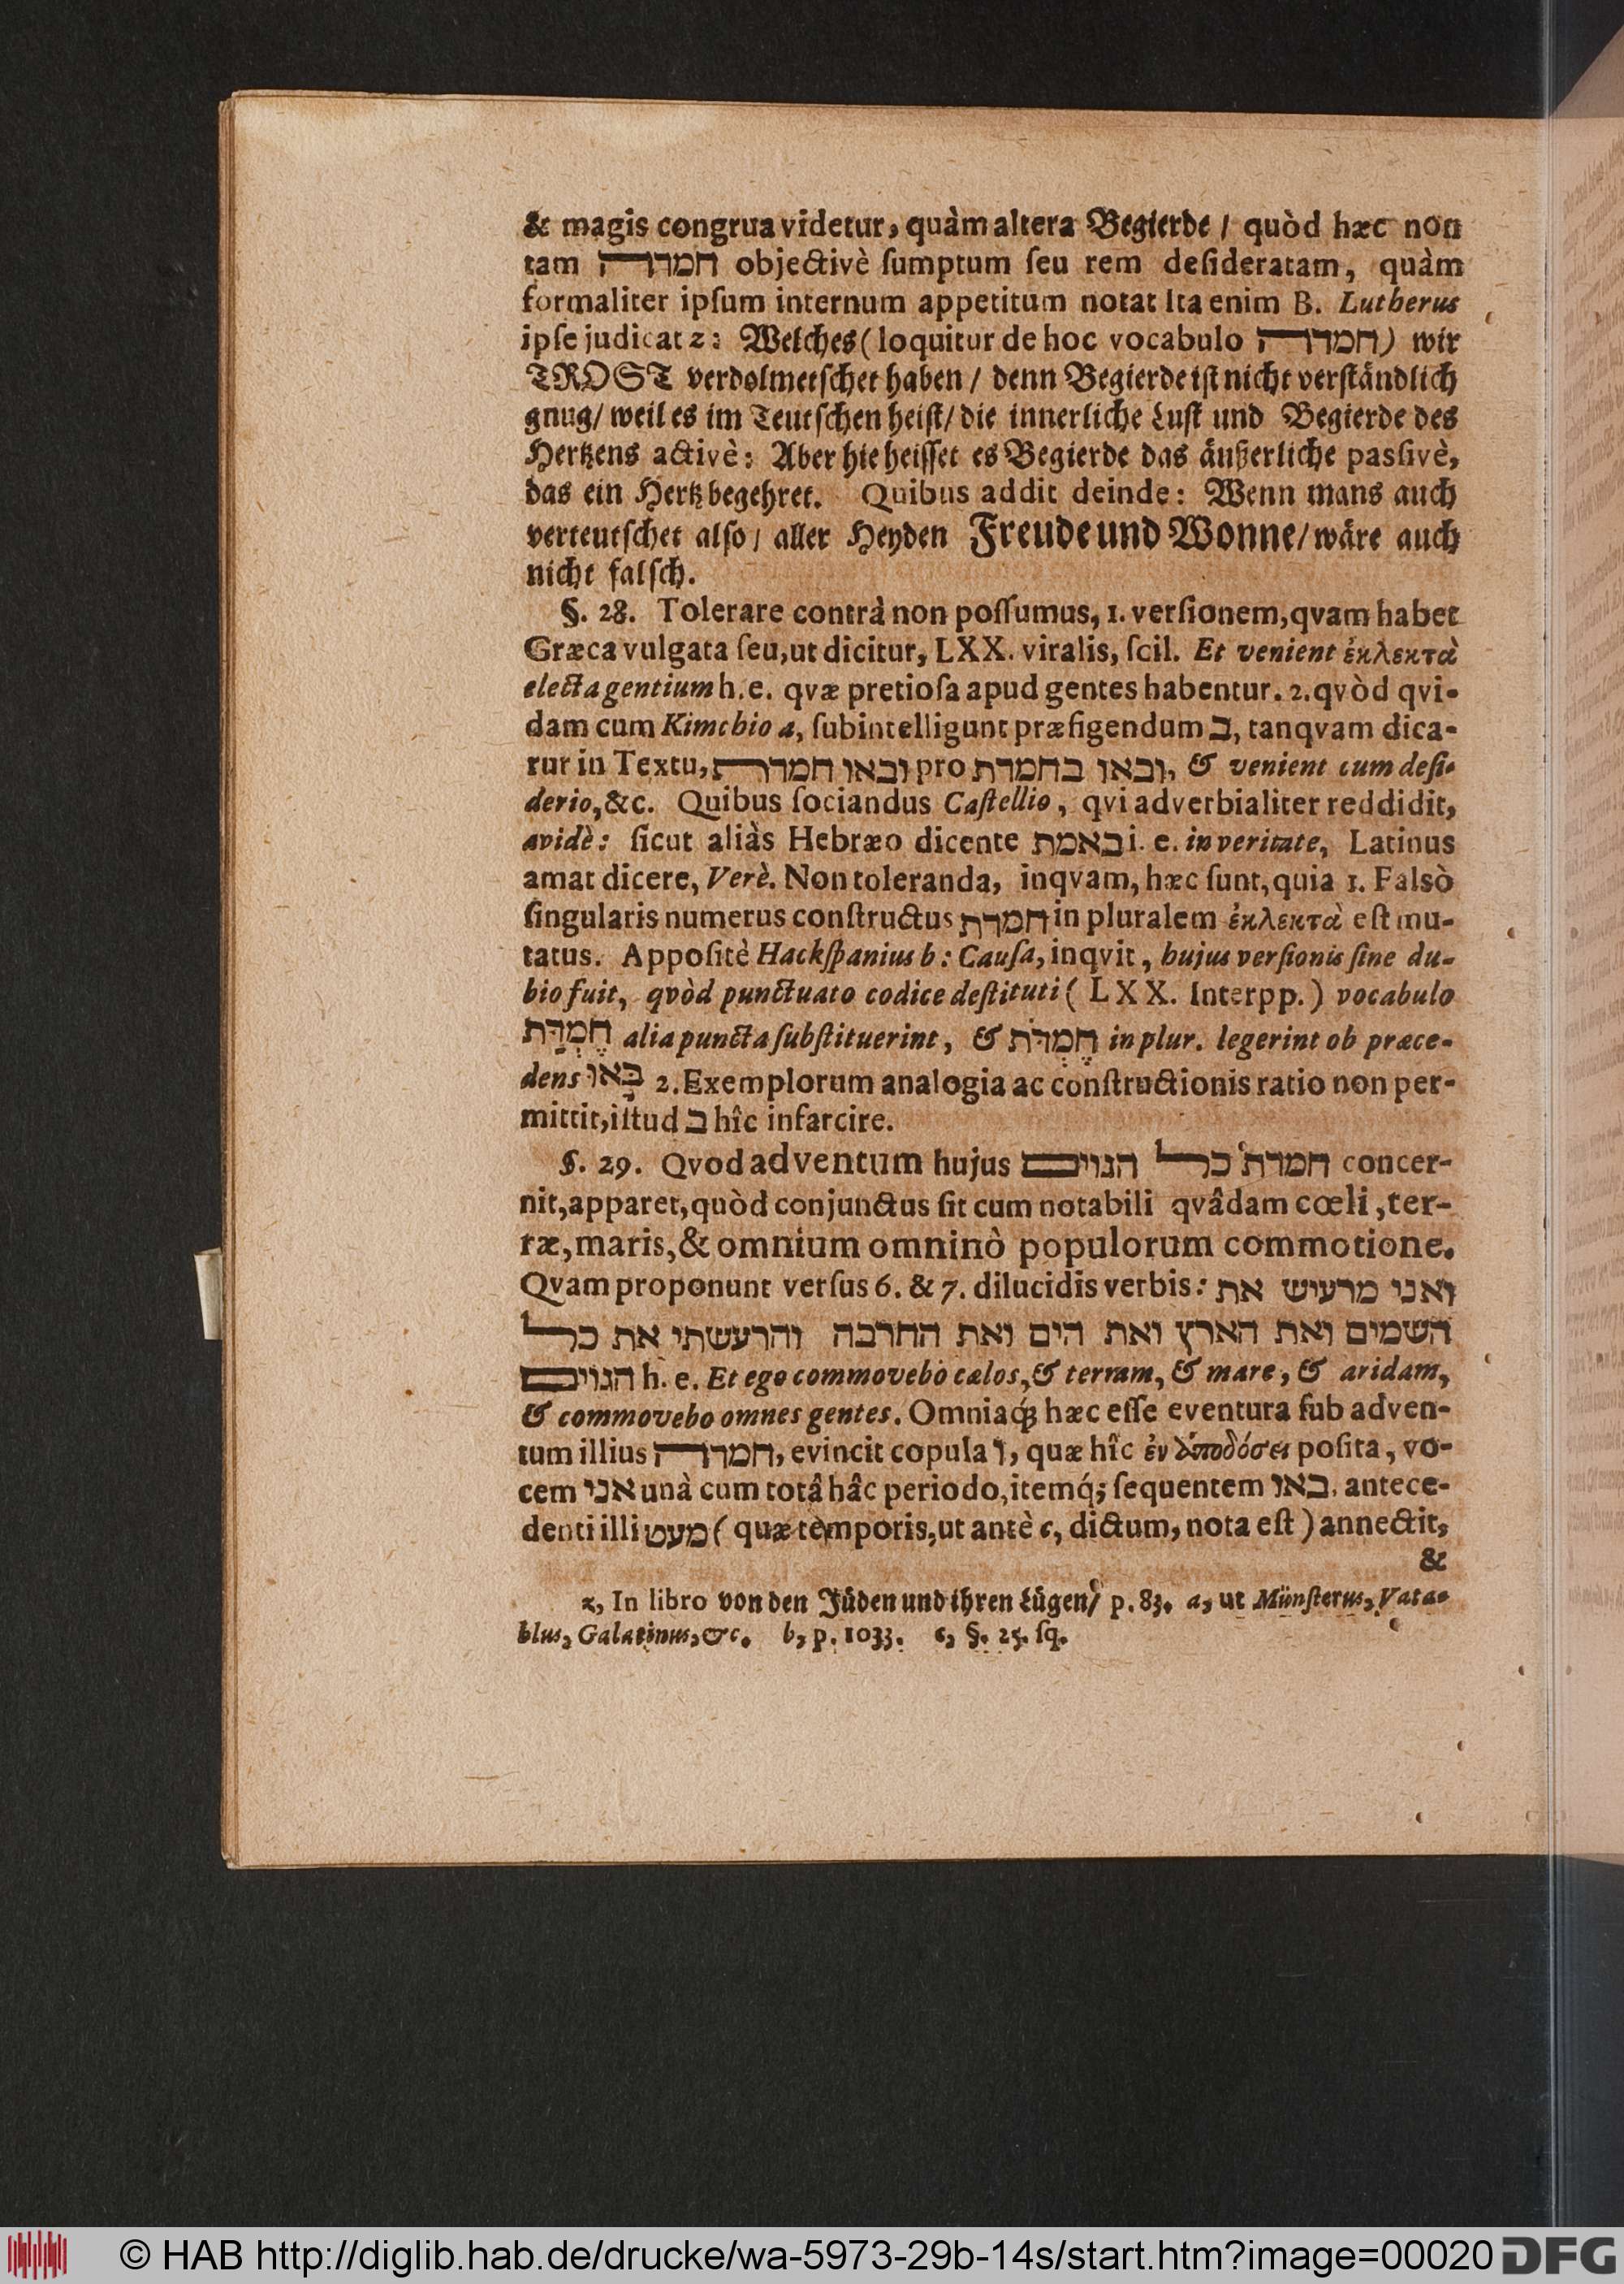 & magis congrua videtur, quàm altera Begierde / quòd hæc non
tam חמדה objectivè ſumptum ſeu rem deſideratam, quàm
formaliter ipſum internum appetitum notat Ita enim B. Lutherus
ipſe judicat z: Welches (loquitur de hoc vocabulo חמדה) wir
TROST verdolmetſchet haben / denn Begierde iſt nicht verſtändlich
gnug/ weil es im Teutſchen heiſt/ die innerliche Luſt und Begierde des
Hertzens activè: Aber hie heiſſet es Begierde das äußerliche paſſivè,
das ein Hertz begehret. Quibus addit deinde: Wenn mans auch
verteutſchet alſo / aller Heyden Freude und Wonne / wäre auch
nicht falſch.
§. 28. Tolerare contrà non poſſumus, 1. verſionem, qvam habet
Græca vulgata ſeu, ut dicitur, LXX. viralis, ſcil. Et venient ἐκλεκτὰ
electa gentium h. e. qvæ pretioſa apud gentes habentur. 2. qvòd qvi-
dam cum Kimchio a, ſubintelligunt præfigendum ב, tanqvam dica-
tur in Textu, ובאו חמדת pro ובאו בחמדת, & venient cum deſi-
derio, &c. Quibus ſociandus Caſtellio, qvi adverbialiter reddidit,
avidè: ſicut aliàs Hebræo dicente באמת i. e. in veritate, Latinus
amat dicere, Verè. Non toleranda, inqvam, hæc ſunt, quia 1. Falsò
ſingularis numerus conſtructus חמדת in pluralem ἐκλεκτὰ eſt mu-
tatus. Appoſitè Hackſpanius b: Cauſa, inqvit, hujus verſionis ſine du-
bio fuit, qvòd punctuato codice deſtituti ( LXX. Interpp.) vocabulo
חֶמְדַּת alia puncta ſubſtituerint, & חֶמְדֹּת in plur. legerint ob præce-
dens בָּאוּ 2. Exemplorum analogia ac conſtructionis ratio non per-
mittit, iſtud ב hîc infarcire.
§. 29. Qvod adventum hujus חמדת כל הגוים concer-
nit, apparet, quòd conjunctus ſit cum notabili qvâdam cœli, ter-
ræ, maris, & omnium omninò populorum commotione.
Qvam proponunt verſus 6. & 7. dilucidis verbis: ואני מרעיש את
השמים ואת הארץ ואת הים ואת החרבה והרעשתי את כל
הגוים h. e. Et ego commovebo cœlos, & terram, & mare, & aridam,
& commovebo omnes gentes. Omniaq́; hæc eſſe eventura ſub adven-
tum illius חמדה, evincit copula ו, quæ hîc ἐν ἀποδόσει poſita, vo-
cem אני unà cum totâ hâc periodo, itemq́; ſequentem באו, antece-
denti illi מעט ( quæ temporis, ut antè c, dictum, nota eſt ) annectit,
&
z, In libro von den Jüden und ihren Lügen / p. 83. a, ut Münſterus, Vata-
blus, Galatinus, &c. b, p. 1033. c, §. 25. ſq.
© HAB http://diglib.hab.de/drucke/wa-5973-29b-14s/start.htm?image=00020 DFG